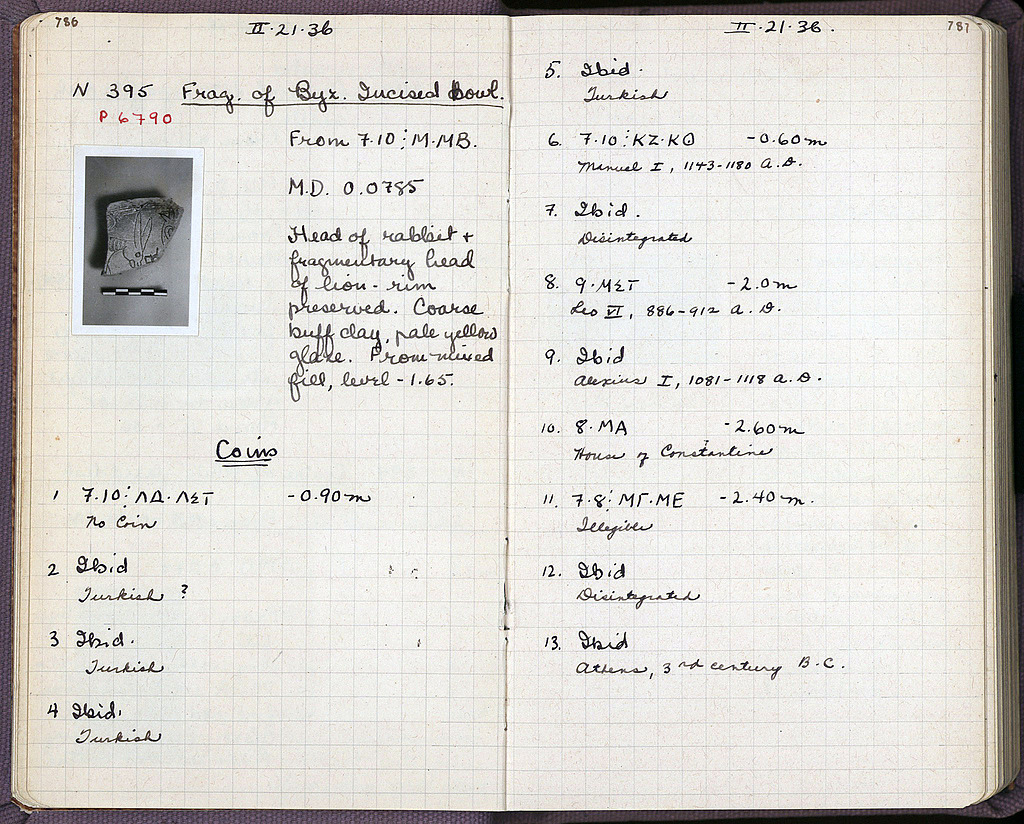 786
II·21·36
N 395 Frag. of Byz. Incised Bowl.
P 6790
From 7·10 : M·MB.
M.D. 0.0785
Head of rabbit +
fragmentary head
of lion - rim
preserved. Coarse
buff clay, pale yellow
glaze. From mixed
fill, level -1.65.
Coins
1 7·10 : ΛΔ·ΛΣΤ -0.90m
No Coin
2 Ibid
Turkish ?
3 Ibid.
Turkish
4 Ibid.
Turkish
787
II·21·36.
5. Ibid.
Turkish
6. 7·10 : ΚΖ·ΚΘ -0.60m
Manuel I, 1143-1180 A.D.
7. Ibid.
Disintegrated
8. 9·ΜΣΤ -2.0m
Leo VI, 886-912 A.D.
9. Ibid
Alexius I, 1081-1118 A.D.
10. 8·ΜΑ -2.60m
House of Constantine
11. 7·8 : ΜΓ·ΜΕ -2.40m.
Illegible
12. Ibid
Disintegrated
13. Ibid
Athens, 3rd century B.C.